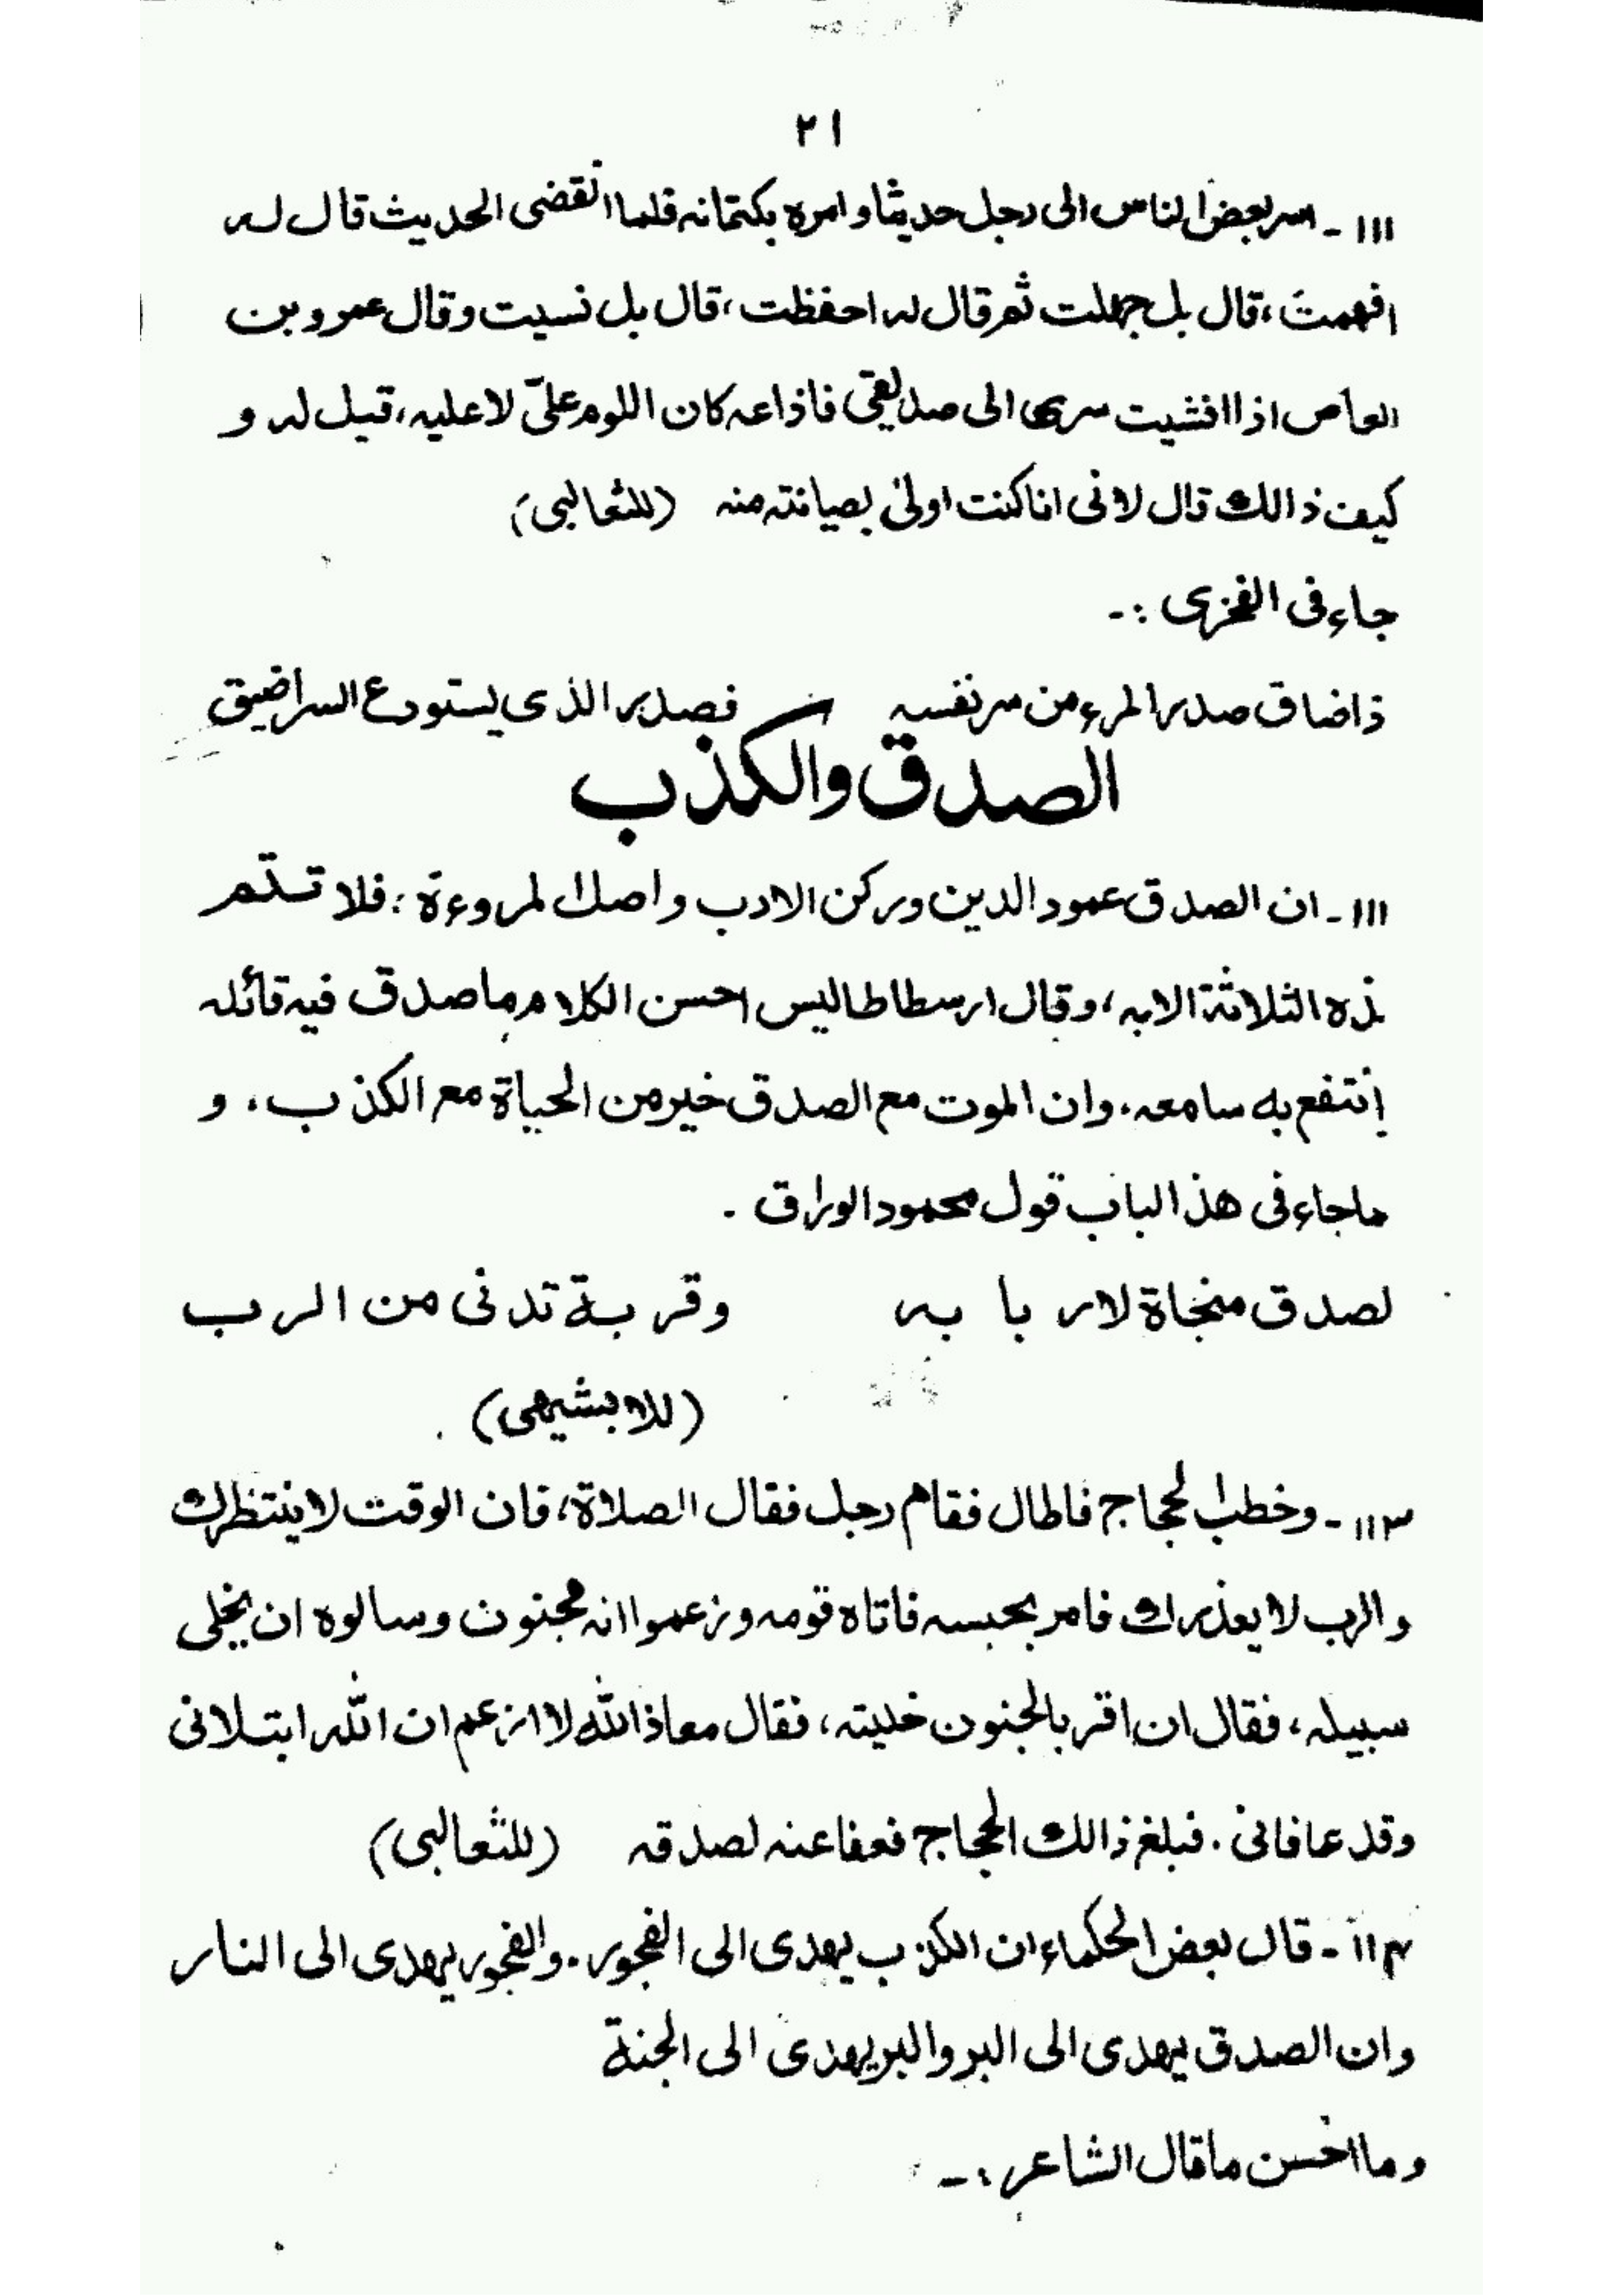 ٢١
١١١ـ اسر بعض الناس الى رجل حديثا و امره بكتمانه فلما انقضى الحديث قال له
افهمت، قال بل جهلت ثم قال له احفظت، قال بل نسيت وقال عمرو بن
العاص اذا افشيت سرى الى صديقى فاذاعه كان اللوم علىّ لا عليه، قيل له و
كيف ذالك قال لانى انا كنت اولىٰ بصيانته منه (للثعالبى)
جاء فى الفخرى :ـ
ذا ضاق صدر المرء من سر نفسه فصدر الذى يستودع السر اضيق
الصدق والكذب
١١١ـ ان الصدق عمود الدين وركن الادب واصل المروءة؛ فلا تتم
ذه الثلاثة الا به، وقال ارسطاطاليس احسن الكلام ما صدق فيه قائله
انتفع به سامعه. وان الموت مع الصدق خير من الحياة مع الكذب، و
ما جاء فى هذا الباب قول محمود الوراق ـ
لصدق منجاة لار با به وقربة تدنى من الرب
(للابشيهى)
١١٣ـ وخطب الحجاج فاطال فقام رجل فقال الصلاة، فان الوقت لا ينتظرك
والرب لا يعذرك فامر بحبسه فاتاه قومه وزعموا انه مجنون وسالوه ان يخلى
سبيله، فقال ان اقر بالجنون خليته، فقال معاذ الله لا ازعم ان الله ابتلانى
وقد عافانى. فبلغ ذالك الحجاج فعفا عنه لصدقه (للثعالبى)
١١٤ـ قال بعض الحكماء ان الكذب يهدى الى الفجور. والفجور يهدى الى النار
وان الصدق يهدى الى البر والبر يهدى الى الجنة
وما احسن ما قال الشاعر :ـ